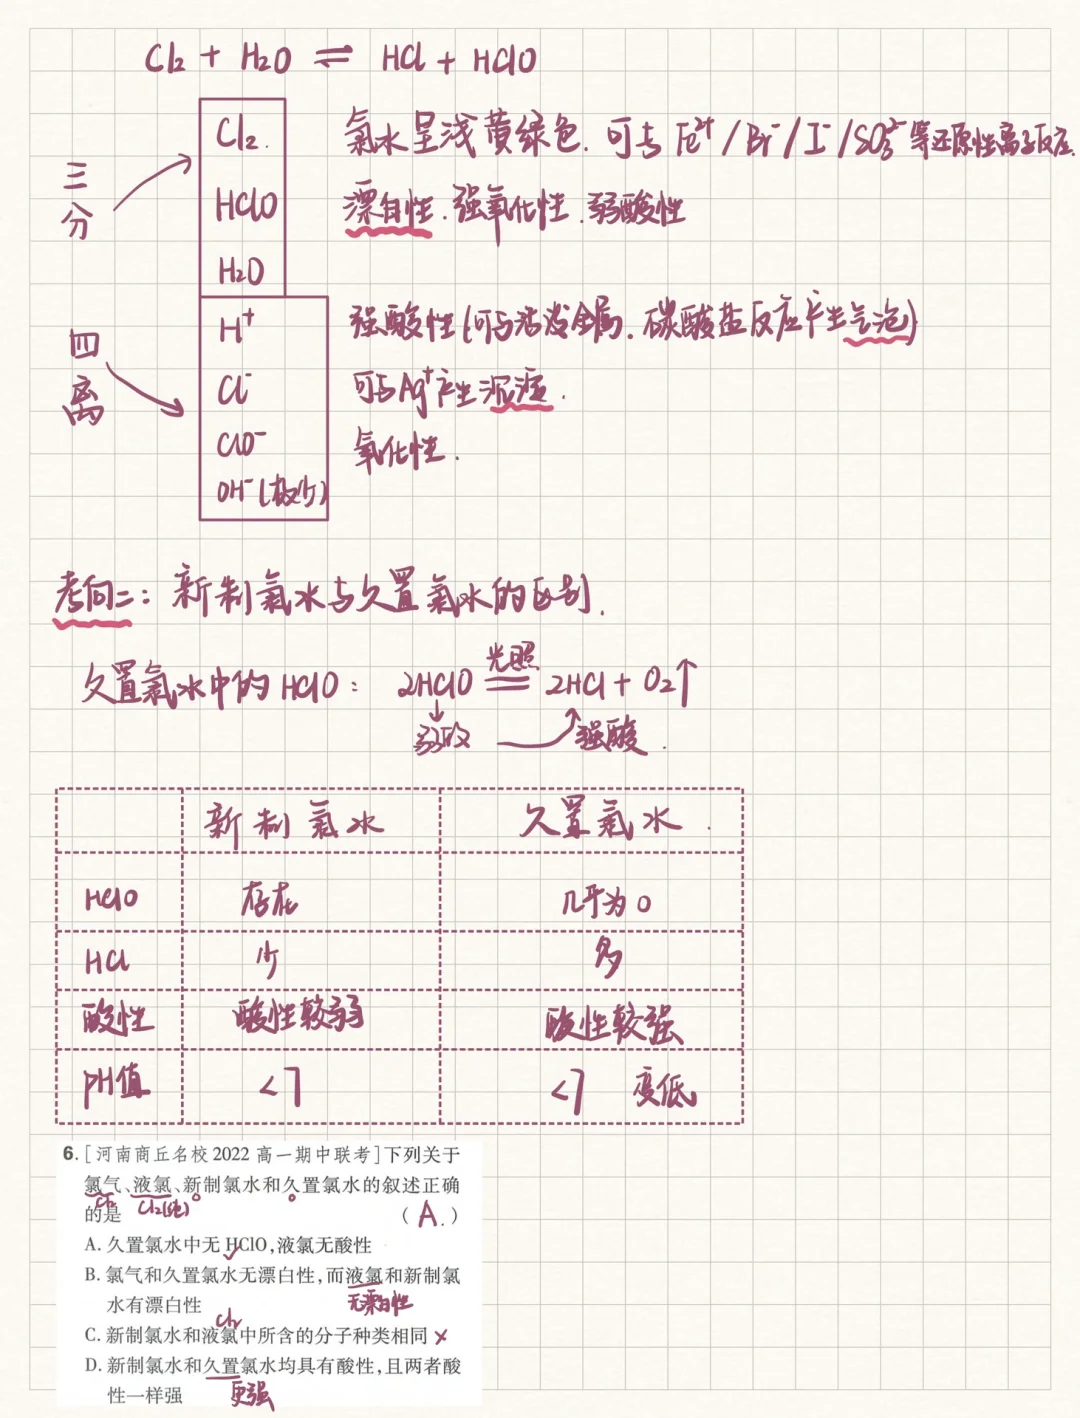 Cl₂ + H₂O ⇌ HCl + HClO
三分
Cl₂. 氯水呈浅黄绿色. 可与Fe²⁺/Br⁻/I⁻/SO₃²⁻等还原性离子反应.
HClO 漂白性.强氧化性.弱酸性
H₂O
四离
H⁺ 强酸性(可与活泼金属.碳酸盐反应产生气泡)
Cl⁻ 可与Ag⁺产生沉淀.
ClO⁻ 氧化性.
OH⁻(极少)
考向二:新制氯水与久置氯水的区别.
久置氯水中的HClO: 2HClO 光照══ 2HCl + O₂↑
弱酸 强酸.
新制氯水 久置氯水.
HClO 存在 几乎为0
HCl 少 多
酸性 酸性较弱 酸性较强
pH值 <7 <7 变低
6.[河南商丘名校2022高一期中联考]下列关于
氯气、液氯、新制氯水和久置氯水的叙述正确
Cl₂ Cl₂(纯)
的是 (A.)
A. 久置氯水中无HClO,液氯无酸性
B. 氯气和久置氯水无漂白性,而液氯和新制氯
水有漂白性 无漂白性
Cl₂
C. 新制氯水和液氯中所含的分子种类相同 ×
D. 新制氯水和久置氯水均具有酸性,且两者酸
性一样强 更强